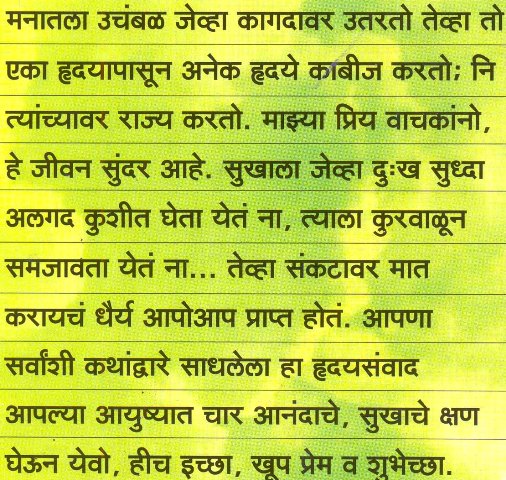 मनातला उचंबळ जेव्हा कागदावर उतरतो तेव्हा तो
एका हृदयापासून अनेक हृदये काबीज करतो; नि
त्यांच्यावर राज्य करतो. माझ्या प्रिय वाचकांनो,
हे जीवन सुंदर आहे. सुखाला जेव्हा दुःख सुध्दा
अलगद कुशीत घेता येतं ना, त्याला कुरवाळून
समजावता येतं ना... तेव्हा संकटावर मात
करायचं धैर्य आपोआप प्राप्त होतं. आपणा
सर्वांशी कथांद्वारे साधलेला हा हृदयसंवाद
आपल्या आयुष्यात चार आनंदाचे, सुखाचे क्षण
घेऊन येवो, हीच इच्छा, खूप प्रेम व शुभेच्छा.